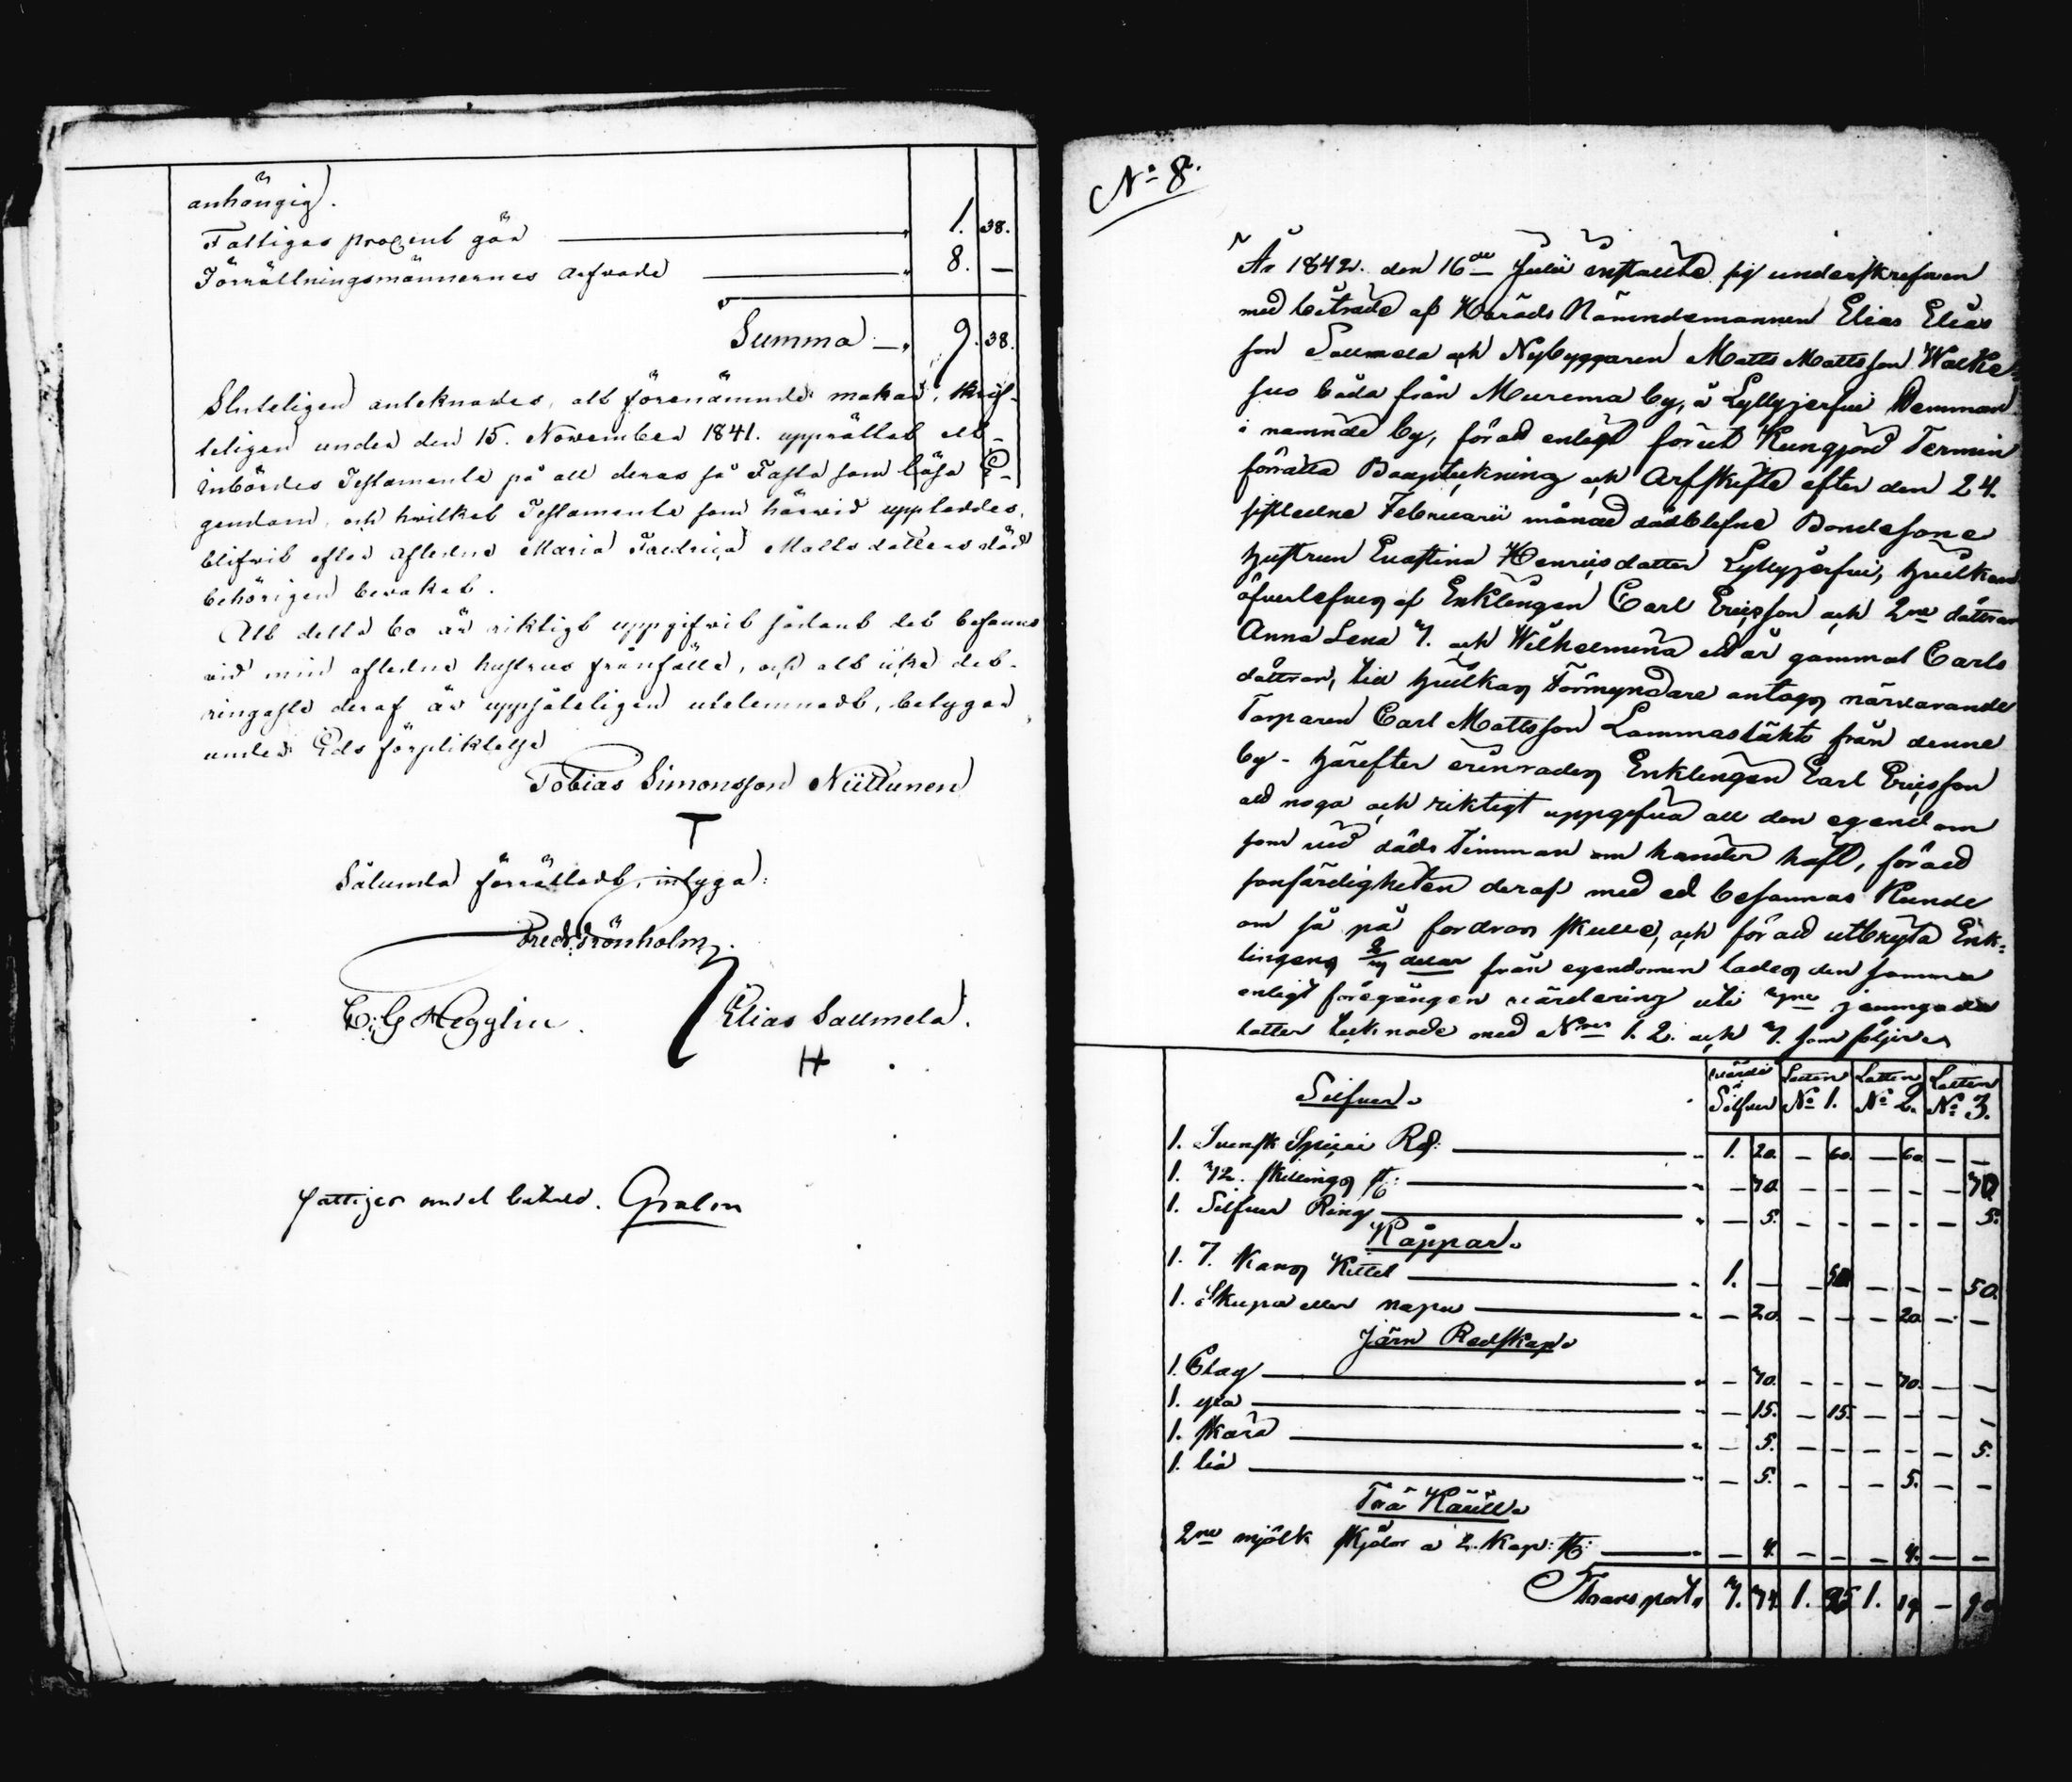 anhängig.
Fattiges procent går " 1. 38.
Förrättningsmännernes Arfvode " 8. —
Summa — " 9. 38.
Sluteligen anteknades, att förenämnde makar, skrif-
teligen under den 15. November 1841. upprättat ett
inbördes Testamente på all deras så Fasta som lösa E-
gendom, och hwilket Testamente som härvid uppladdes,
blifvit efter afledne Maria Fredrica Mattsdotters död
behörigen bevakat.
Att detta bo är riktigt uppgifvit sådant det befanns
vid min afledne hustrus frånfälle, och att icke det
ringaste deraf är uppsåteligen utelemnadt, betygar
under Eds förpliktelse
Tobias Simonsson Niittunen
T
Sålunda förrättadt, intyga:
Fredr. Frönholm
C. G. Hegglin. Elias Sallmela.
H
fattiges andel betald. Gralin
No 8.
År 1842. den 16de Julii instälte sig underskrefven
med biträde af Härads Nämndemannen Elias Elias
son Sallmela och Nybyggaren Matts Mattsson Walke-
jus båda från Murema by, å Lyllyjerfvi Hemman
i nämnde by, för att enligt förut Kungjord Termin
förrätta Boupteckning och Arfskifte efter den 24.
sistledne Februarii månad dödblefne Bondesons
hustrun Evastina Henricsdotter Lyllyjerfvi, hvilken
öfverlefves af Enklingen Carl Ericsson och 2ne döttrar
Anna Lena 3. och Wilhelmina ett år gammal Carls
döttrar, till hvilkas Förmyndare antogs närvarande
Torparen Carl Mattsson Lammaslähts från denne
by - härefter erinrades Enklingen Carl Ericsson
att noga och riktigt uppgifva all den egendom
som vid döds timman om händer haft, för att
sanfärdigheten deraf med ed besannas kunde
om så på fordras skulle, och för att utbryta Enk=
lingens 2/3 delar från egendomen lades den samma
enligt föregången värdering uti 3ne jemngoda
lotter tecknade med Nris 1. 2. och 3. som följer
Silfver. värde i Silfver Lotten No 1. Lotten No 2. Lotten No 3.
1. Svensk Specie Rd: " 1. 20. — 60. — 60. — —
1. 32. skillings st: " — 30. — — — — — 30.
1. Silfver Ring " — 5. — — — — — 5.
Koppar.
1. 7. Kans Kittel " 1. — — 50. — — — 50.
1. Skupa eller napu " — 20. — — — 20. — —
Järn Redskap.
1. Plog " — 30. — — — 30. — —
1. yxa " — 15. — 15. — — — —
1. skära " — 5. — — — — — 5.
1. lia " — 5. — — — 5. — —
Trä Käril.
2ne mjölk skjölor a 2. kop: st: " — 4. — — — 4. — —
Transport, 3. 34. 1. 25 1. 19 — 90